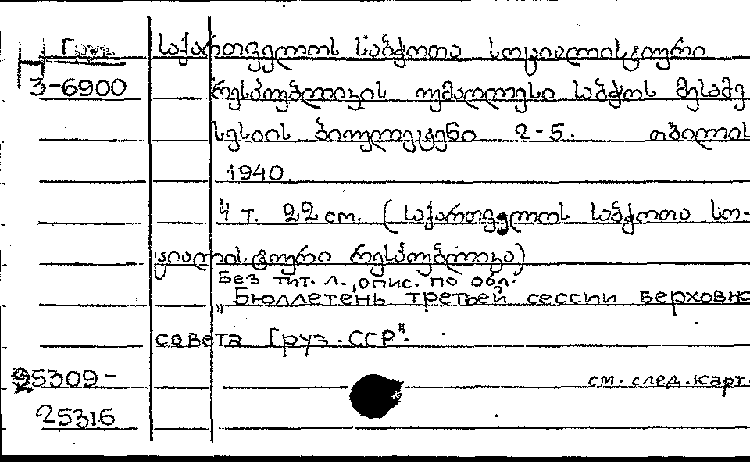 Груз. საქართველოს საბჭოთა სოციალისტიური
3-6900 რესპუბლიკის უმაღლესი საბჭოს მესამე
სესიის ბიულეტენი 2-5. თბილის
1940
4 т. 22 cm. (საქართველოს საბჭოთა სო-
ციალისტიური რესპუბლიკა)
Без тит. л., опис. по обл.
"Бюллетень третьей сессии верховно
совета Груз. ССР".
25309- см. след. карт.
25316